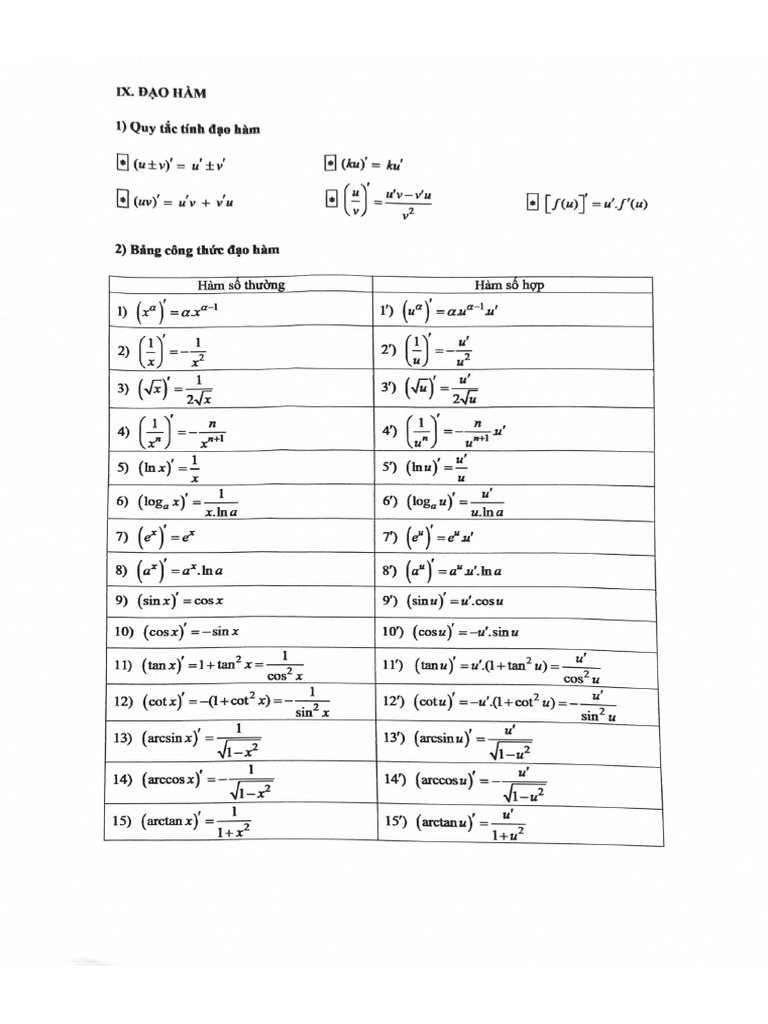 IX. ĐẠO HÀM
1) Quy tắc tính đạo hàm
* (u ± v)′ = u′ ± v′ * (ku)′ = ku′
* (uv)′ = u′v + v′u * (u/v)′ = (u′v − v′u)/v² * [f(u)]′ = u′.f′(u)
2) Bảng công thức đạo hàm
Hàm số thường Hàm số hợp
1) (x^α)′ = α.x^(α−1) 1′) (u^α)′ = α.u^(α−1).u′
2) (1/x)′ = −1/x² 2′) (1/u)′ = −u′/u²
3) (√x)′ = 1/(2√x) 3′) (√u)′ = u′/(2√u)
4) (1/x^n)′ = −n/x^(n+1) 4′) (1/u^n)′ = −n/u^(n+1).u′
5) (ln x)′ = 1/x 5′) (ln u)′ = u′/u
6) (logₐ x)′ = 1/(x.ln a) 6′) (logₐ u)′ = u′/(u.ln a)
7) (e^x)′ = e^x 7′) (e^u)′ = e^u.u′
8) (a^x)′ = a^x.ln a 8′) (a^u)′ = a^u.u′.ln a
9) (sin x)′ = cos x 9′) (sin u)′ = u′.cos u
10) (cos x)′ = −sin x 10′) (cos u)′ = −u′.sin u
11) (tan x)′ = 1 + tan² x = 1/cos² x 11′) (tan u)′ = u′.(1 + tan² u) = u′/cos² u
12) (cot x)′ = −(1 + cot² x) = −1/sin² x 12′) (cot u)′ = −u′.(1 + cot² u) = −u′/sin² u
13) (arcsin x)′ = 1/√(1−x²) 13′) (arcsin u)′ = u′/√(1−u²)
14) (arccos x)′ = −1/√(1−x²) 14′) (arccos u)′ = −u′/√(1−u²)
15) (arctan x)′ = 1/(1+x²) 15′) (arctan u)′ = u′/(1+u²)